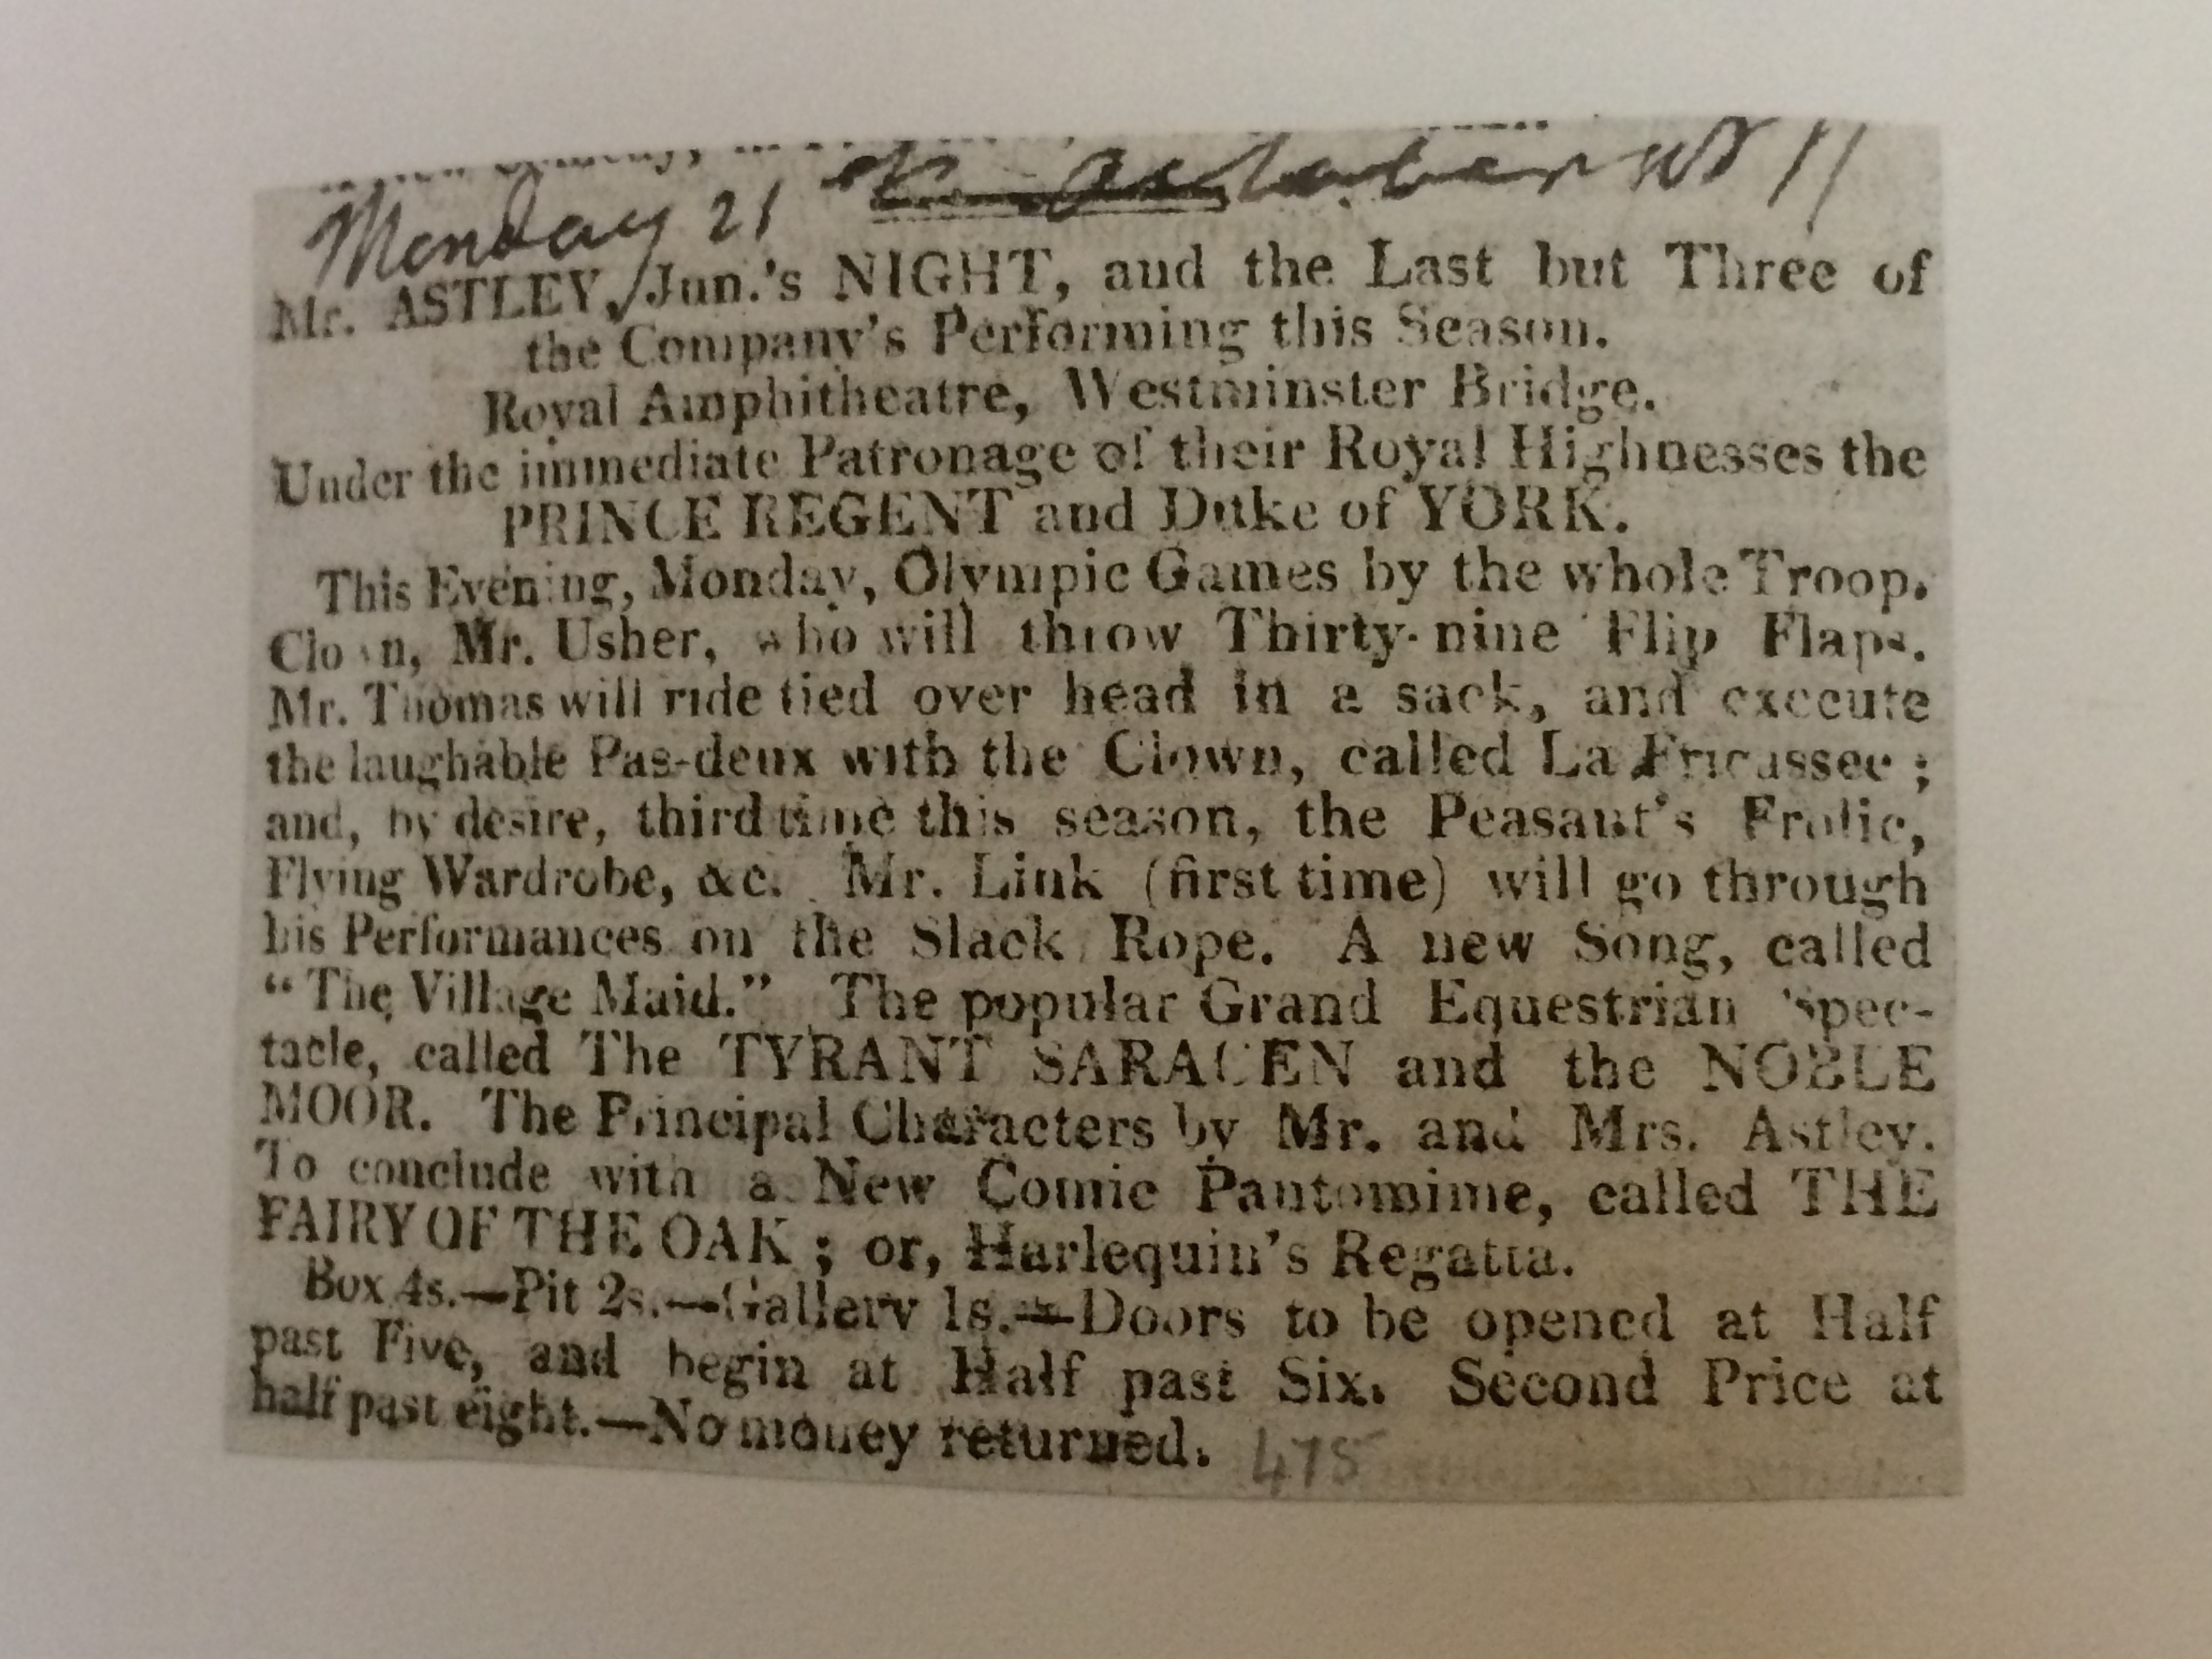 Monday 21 October 1811
Mr. ASTLEY, Jun.'s NIGHT, and the Last but Three of
the Company's Performing this Season.
Royal Amphitheatre, Westminster Bridge.
Under the immediate Patronage of their Royal Highnesses the
PRINCE REGENT and Duke of YORK.
This Evening, Monday, Olympic Games by the whole Troop.
Clown, Mr. Usher, who will throw Thirty-nine Flip Flaps.
Mr. Thomas will ride tied over head in a sack, and execute
the laughable Pas-deux with the Clown, called La Fricassee;
and, by desire, third time this season, the Peasant's Frolic,
Flying Wardrobe, &c. Mr. Link (first time) will go through
his Performances on the Slack Rope. A new Song, called
"The Village Maid." The popular Grand Equestrian Spec-
tacle, called The TYRANT SARACEN and the NOBLE
MOOR. The Principal Characters by Mr. and Mrs. Astley.
To conclude with a New Comic Pantomime, called THE
FAIRY OF THE OAK; or, Harlequin's Regatta.
Box 4s.—Pit 2s.—Gallery 1s.—Doors to be opened at Half
past Five, and begin at Half past Six. Second Price at
half past eight.—No money returned.
475